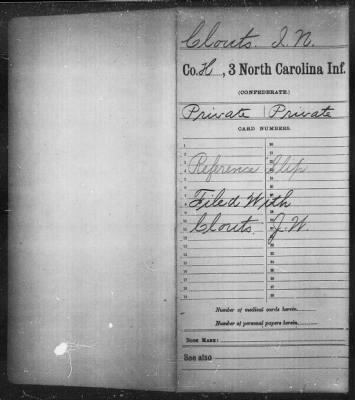 Clouts. I. N.
Co. H, 3 North Carolina Inf.
(CONFEDERATE.)
Private | Private
CARD NUMBERS.
Reference Slip
Filed With
Clouts. J. W.
Number of medical cards herein
Number of personal papers herein
BOOK MARK:
See also